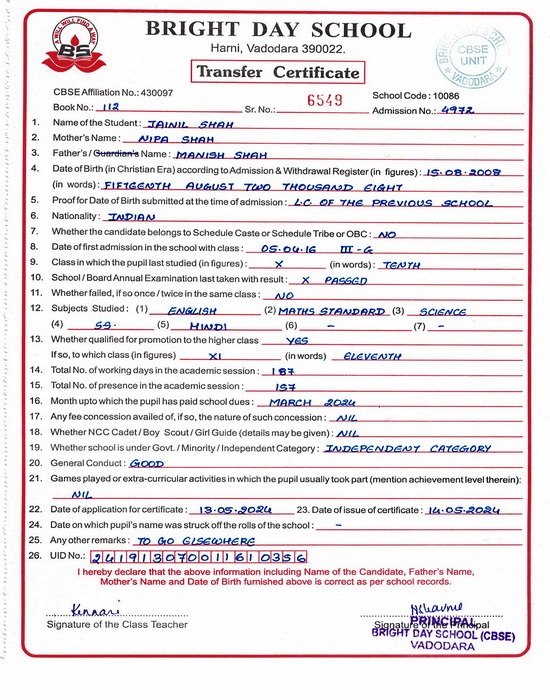 A WILL WILL FIND A WAY
BS
BRIGHT DAY SCHOOL
Harni, Vadodara 390022.
Transfer Certificate
CBSE UNIT
VADODARA
CBSE Affiliation No.: 430097 School Code : 10086
Book No.: 112 Sr. No.: 6549 Admission No.: 4972
1. Name of the Student : JAINIL SHAH
2. Mother's Name : NIPA SHAH
3. Father's / Guardian's Name : MANISH SHAH
4. Date of Birth (in Christian Era) according to Admission & Withdrawal Register (in figures) : 15.08.2008
(in words) : FIFTEENTH AUGUST TWO THOUSAND EIGHT
5. Proof for Date of Birth submitted at the time of admission : L.C OF THE PREVIOUS SCHOOL
6. Nationality : INDIAN
7. Whether the candidate belongs to Schedule Caste or Schedule Tribe or OBC : NO
8. Date of first admission in the school with class : 05.04.16 III-G
9. Class in which the pupil last studied (in figures) : X (in words) : TENTH
10. School / Board Annual Examination last taken with result : X PASSED
11. Whether failed, if so once / twice in the same class : NO
12. Subjects Studied : (1) ENGLISH (2) MATHS STANDARD (3) SCIENCE
(4) SS. (5) HINDI (6) - (7) -
13. Whether qualified for promotion to the higher class YES
If so, to which class (in figures) XI (in words) ELEVENTH
14. Total No. of working days in the academic session : 187
15. Total No. of presence in the academic session : 157
16. Month upto which the pupil has paid school dues : MARCH 2024
17. Any fee concession availed of, if so, the nature of such concession : NIL
18. Whether NCC Cadet / Boy Scout / Girl Guide (details may be given) : NIL
19. Whether school is under Govt. / Minority / Independent Category : INDEPENDENT CATEGORY
20. General Conduct : GOOD
21. Games played or extra-curricular activities in which the pupil usually took part (mention achievement level therein):
NIL
22. Date of application for certificate : 13.05.2024 23. Date of issue of certificate : 14.05.2024
24. Date on which pupil's name was struck off the rolls of the school : -
25. Any other remarks : TO GO ELSEWHERE
26. UID No.: 241913070011610356
I hereby declare that the above information including Name of the Candidate, Father's Name,
Mother's Name and Date of Birth furnished above is correct as per school records.
Kinnari
Signature of the Class Teacher Signature of the Principal
PRINCIPAL
BRIGHT DAY SCHOOL (CBSE)
VADODARA